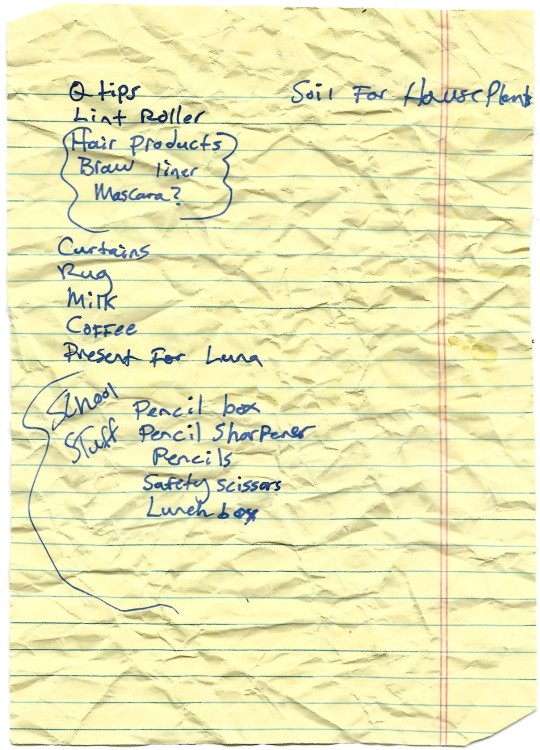 Q tips
Soil For House Plants
Lint Roller
Hair products
Brow liner
Mascara?
Curtains
Rug
Milk
Coffee
Present For Luna
School Stuff
Pencil box
Pencil Sharpener
Pencils
Safety scissors
Lunch box